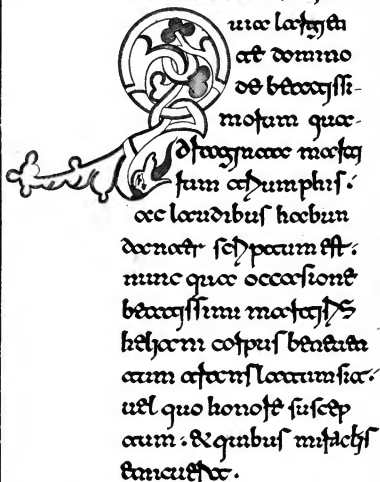 Quia largien
te domino
de beatissi-
morum qua-
draginta marty
rum triumphis.
ac laudibus habun
danter scriptum est.
nunc qua occasione
beatissimi martyris
heliani corpus beneuen
tum translatum sit.
uel quo honore suscep
tum. & quibus miraclis
emicuerit.